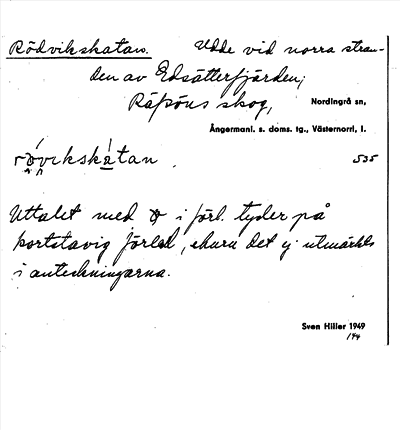 Rödvikskatan. Udde vid norra stran-
den av Edsätterfjärden,
Räfsöns skog, Nordingrå sn,
Ångermanl. s. doms. tg., Västernorrl, l.
rövikskatan. 535
Uttalet med i förl. tyder på
kortstavig förled, ehuru det ej utmärkts
i anteckningarna.
Sven Hiller 1949
144